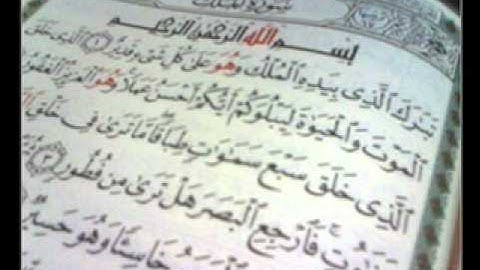 سورة الملك
بِسْمِ اللَّهِ الرَّحْمَٰنِ الرَّحِيمِ
تَبَارَكَ الَّذِي بِيَدِهِ الْمُلْكُ وَهُوَ عَلَىٰ كُلِّ شَيْءٍ قَدِيرٌ ١ الَّذِي خَلَقَ
الْمَوْتَ وَالْحَيَاةَ لِيَبْلُوَكُمْ أَيُّكُمْ أَحْسَنُ عَمَلًا وَهُوَ الْعَزِيزُ الْغَفُورُ
الَّذِي خَلَقَ سَبْعَ سَمَاوَاتٍ طِبَاقًا مَا تَرَىٰ فِي خَلْقِ
فَارْجِعِ الْبَصَرَ هَلْ تَرَىٰ مِنْ فُطُورٍ ٣
خَاسِئًا وَهُوَ حَسِيرٌ